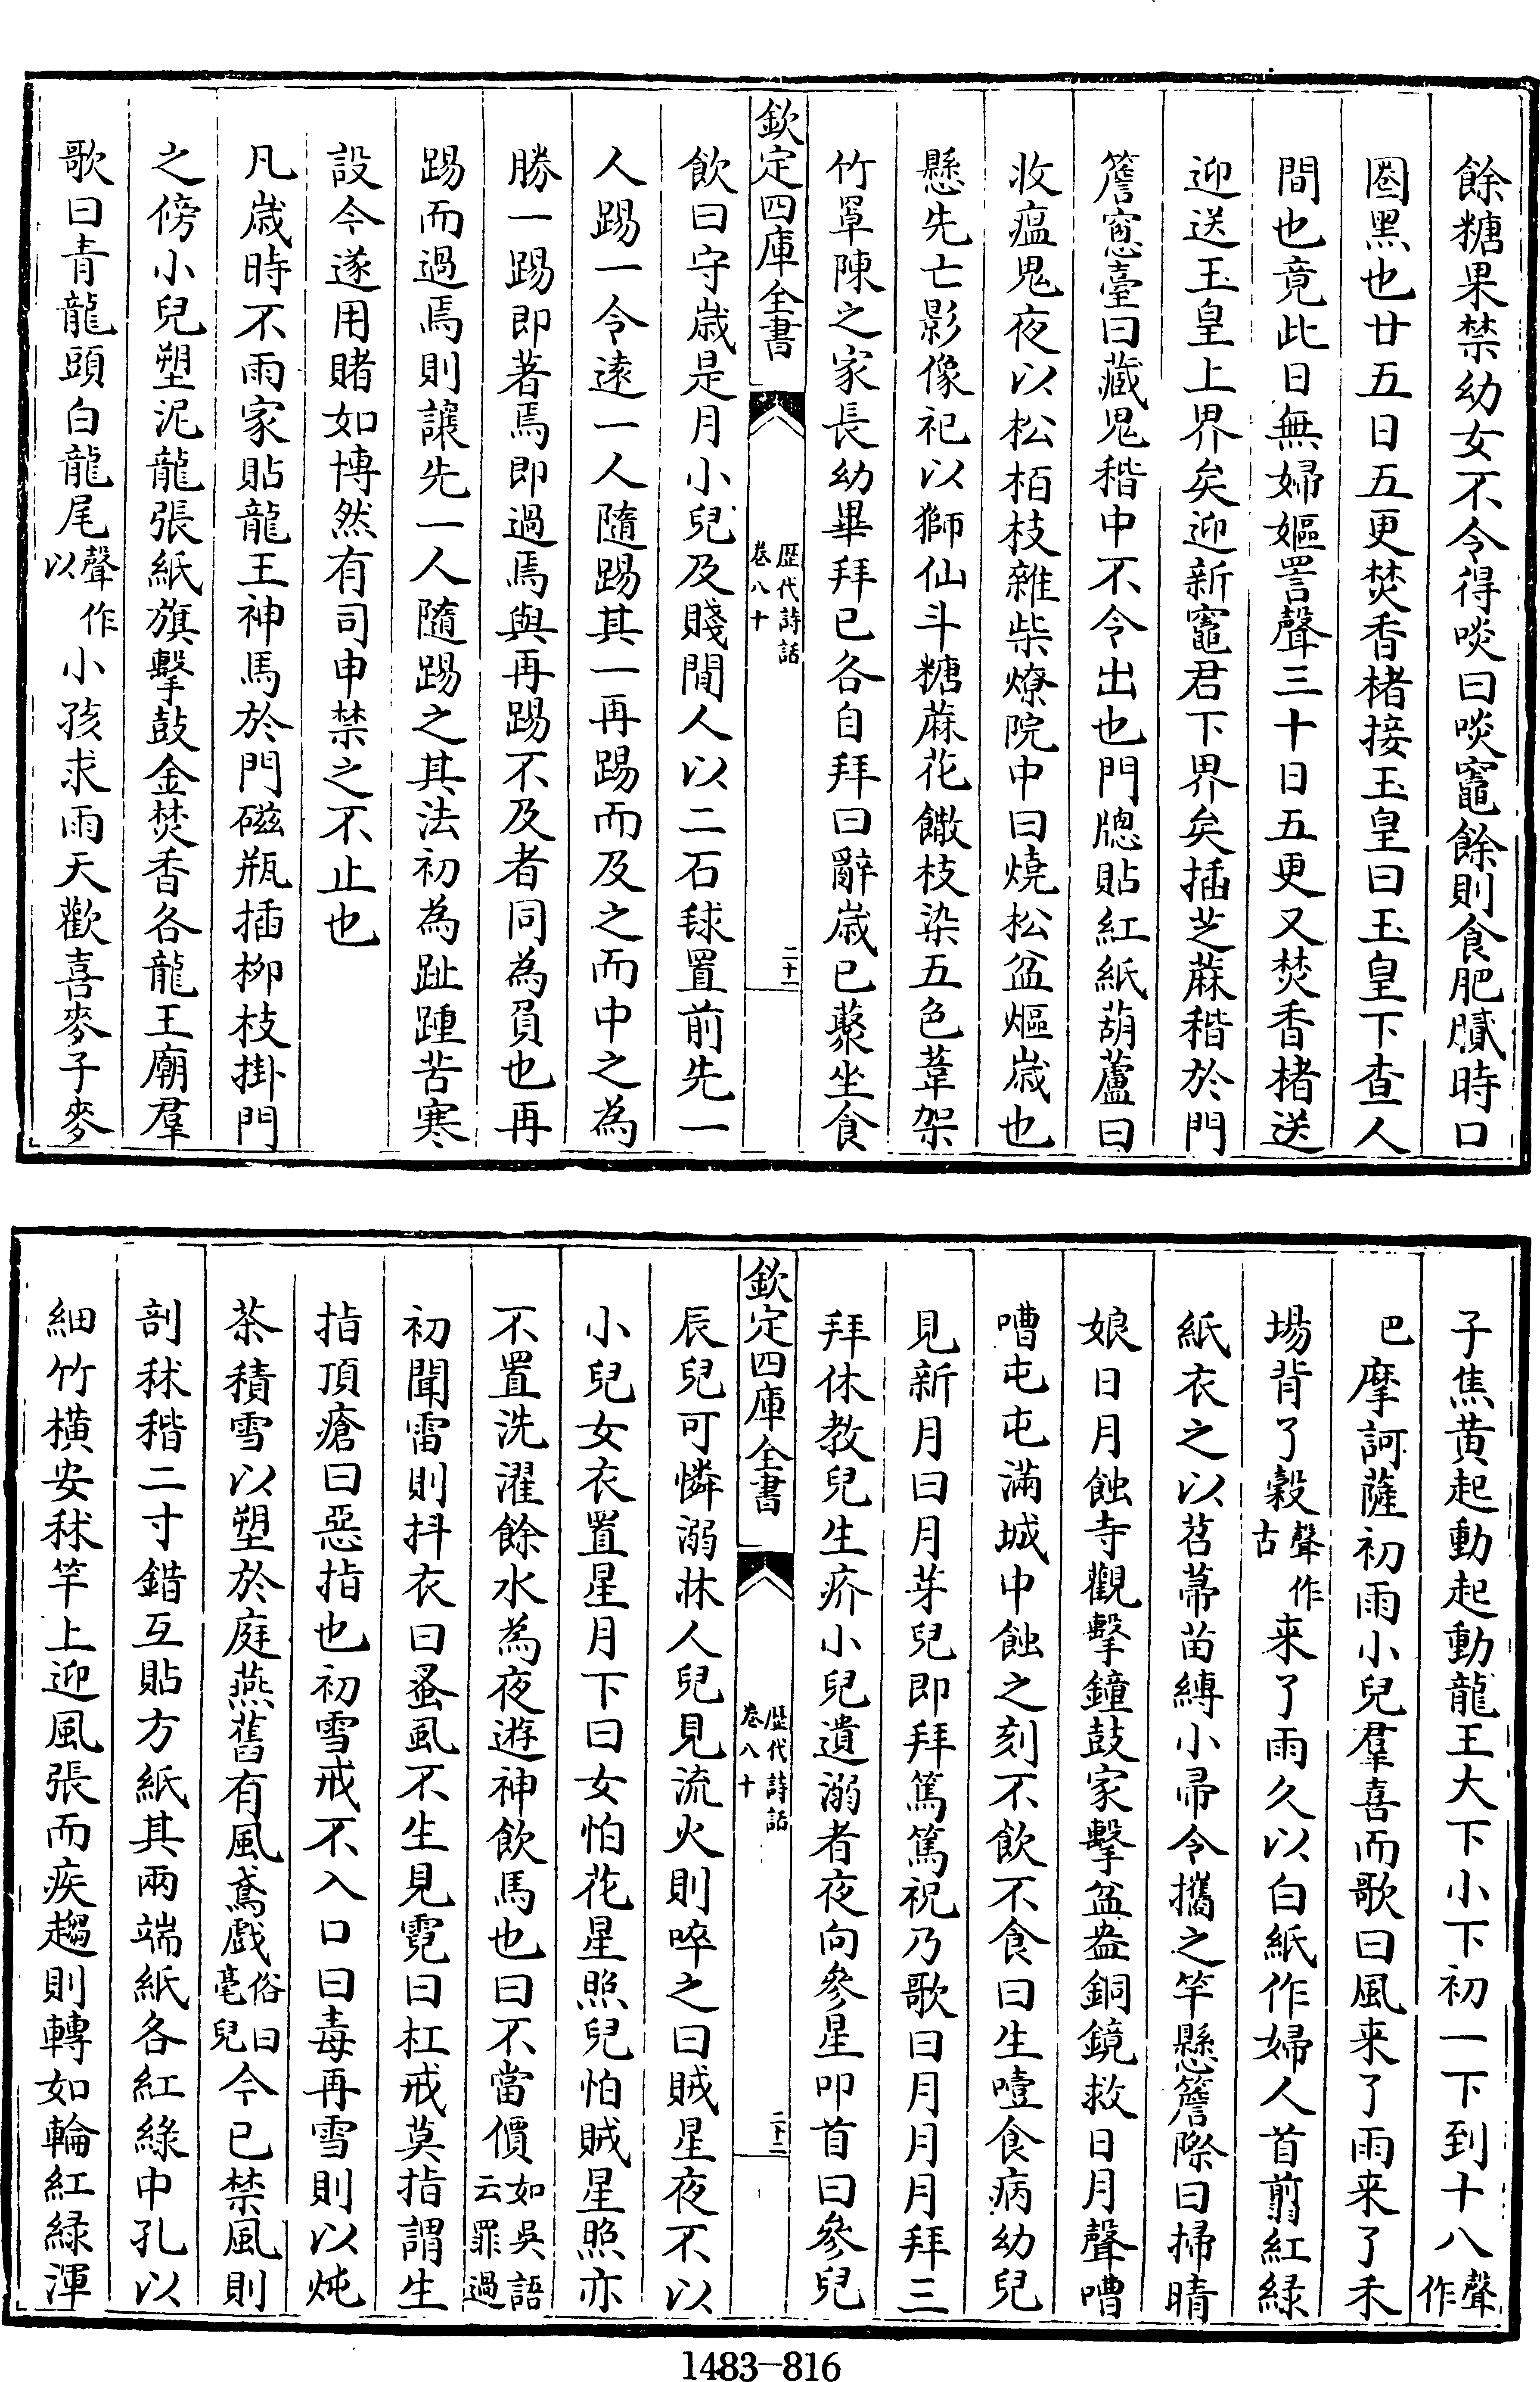 餘糖果禁幼女不令得啖曰啖竈餘則食肥膩時口
圈黑也廿五日五更焚香楮接玉皇曰玉皇下查人
間也竟此日無婦嫗詈聲三十日五更又焚香楮送
迎送玉皇上界矣迎新竈君下界矣插芝蔴稭於門
簷窻臺曰藏鬼稭中不令出也門牕貼紅紙葫蘆曰
收瘟鬼夜以松栢枝雜柴燎院中曰燒松盆熰歲也
懸先亡影像祀以獅仙斗糖蔴花饊枝染五色葦架
竹罩陳之家長幼畢拜已各自拜曰辭歲已聚坐食
欽定四庫全書
歷代詩話
卷八十
二十一
飲曰守歲是月小兒及賤閒人以二石毬置前先一
人踢一令遠一人隨踢其一再踢而及之而中之為
勝一踢即著焉即過焉與再踢不及者同為負也再
踢而過焉則讓先一人隨踢之其法初為趾踵苦寒
設今遂用賭如博然有司申禁之不止也
凡歲時不雨家貼龍王神馬於門磁瓶插柳枝掛門
之傍小兒塑泥龍張紙旗擊鼓金焚香各龍王廟羣
歌曰青龍頭白龍尾聲作以小孩求雨天歡喜麥子麥
子焦黄起動起動龍王大下小下初一下到十八聲作
巴摩訶薩初雨小兒羣喜而歌曰風来了雨来了禾
場背了榖聲作古来了雨久以白紙作婦人首翦紅綠
紙衣之以苕帚苗縛小帚令攜之竿懸簷際曰掃晴
娘日月蝕寺觀擊鐘鼓家擊盆盎銅鏡救日月聲嘈
嘈屯屯滿城中蝕之刻不飲不食曰生噎食病幼兒
見新月曰月芽兒即拜篤篤祝乃歌曰月月月拜三
拜休教兒生疥小兒遺溺者夜向參星叩首曰參兒
欽定四庫全書
歷代詩話
卷八十
二十二
辰兒可憐溺牀人兒見流火則啐之曰賊星夜不以
小兒女衣置星月下曰女怕花星照兒怕賊星照亦
不置洗濯餘水為夜遊神飲馬也曰不當價如吳語云罪過
初聞雷則抖衣曰蚤虱不生見霓曰杠戒莫指謂生
指頂瘡曰惡指也初雪戒不入口曰毒再雪則以炖
茶積雪以塑於庭燕舊有風鳶戲俗曰毫兒今已禁風則
剖秫稭二寸錯互貼方紙其兩端紙各紅綠中孔以
細竹横安秫竿上迎風張而疾趨則轉如輪紅緑渾
1483-816